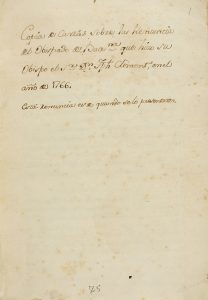 Copia de Cartas sobre la renuncia
del Obispado de Barna que hizo su
Obispo el Sr. Dn. Jph. Climent, en el
año de 1766.
Esta renuncia es de quando se lo presentaron.
75